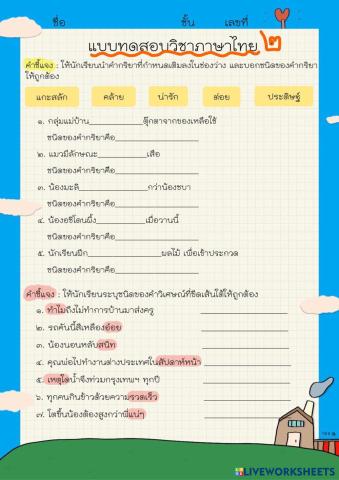 ชื่อ ชั้น เลขที่
แบบทดสอบวิชาภาษาไทย ๒
คำชี้แจง : ให้นักเรียนนำคำกริยาที่กำหนดเติมลงในช่องว่าง และบอกชนิดของคำกริยา
ให้ถูกต้อง
แกะสลัก คล้าย น่ารัก ต่อย ประดิษฐ์
๑. กลุ่มแม่บ้าน____________ตุ๊กตาจากของเหลือใช้
ชนิดของคำกริยาคือ____________
๒. แมวมีลักษณะ____________เสือ
ชนิดของคำกริยาคือ____________
๓. น้องมะลิ____________กว่าน้องชบา
ชนิดของคำกริยาคือ____________
๔. น้องอชิโดนผึ้ง____________เมื่อวานนี้
ชนิดของคำกริยาคือ____________
๕. นักเรียนฝึก____________ผลไม้ เพื่อเข้าประกวด
ชนิดของคำกริยาคือ____________
คำชี้แจง : ให้นักเรียนระบุชนิดของคำวิเศษณ์ที่ขีดเส้นใต้ให้ถูกต้อง
๑. ทำไมถึงไม่ทำการบ้านมาส่งครู
๒. รถคันนี้สีเหลืองอ๋อย
๓. น้องนอนหลับสนิท
๔. คุณพ่อไปทำงานต่างประเทศในสัปดาห์หน้า
๕. เหตุใดน้ำจึงท่วมกรุงเทพฯ ทุกปี
๖. ทุกคนกินข้าวด้วยความรวดเร็ว
๗. โตขึ้นน้องต้องสูงกว่าพี่แน่ๆ
LIVEWORKSHEETS